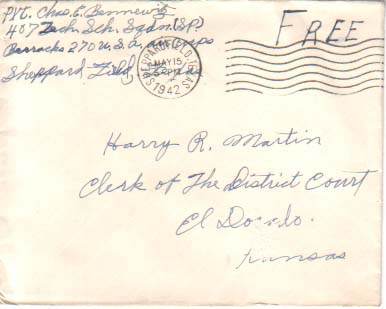 Pvt. Chas. E. Bennewitz
407 Tech. Sch. Sqdn. (S.P.)
Barracks 270 U.S.A. Air Corps
Sheppard Field, Texas
SHEPPARD FIELD, TEXAS
MAY 15
5 PM
1942
FREE
Harry R. Martin
Clerk of The District Court
El Dorado.
Kansas